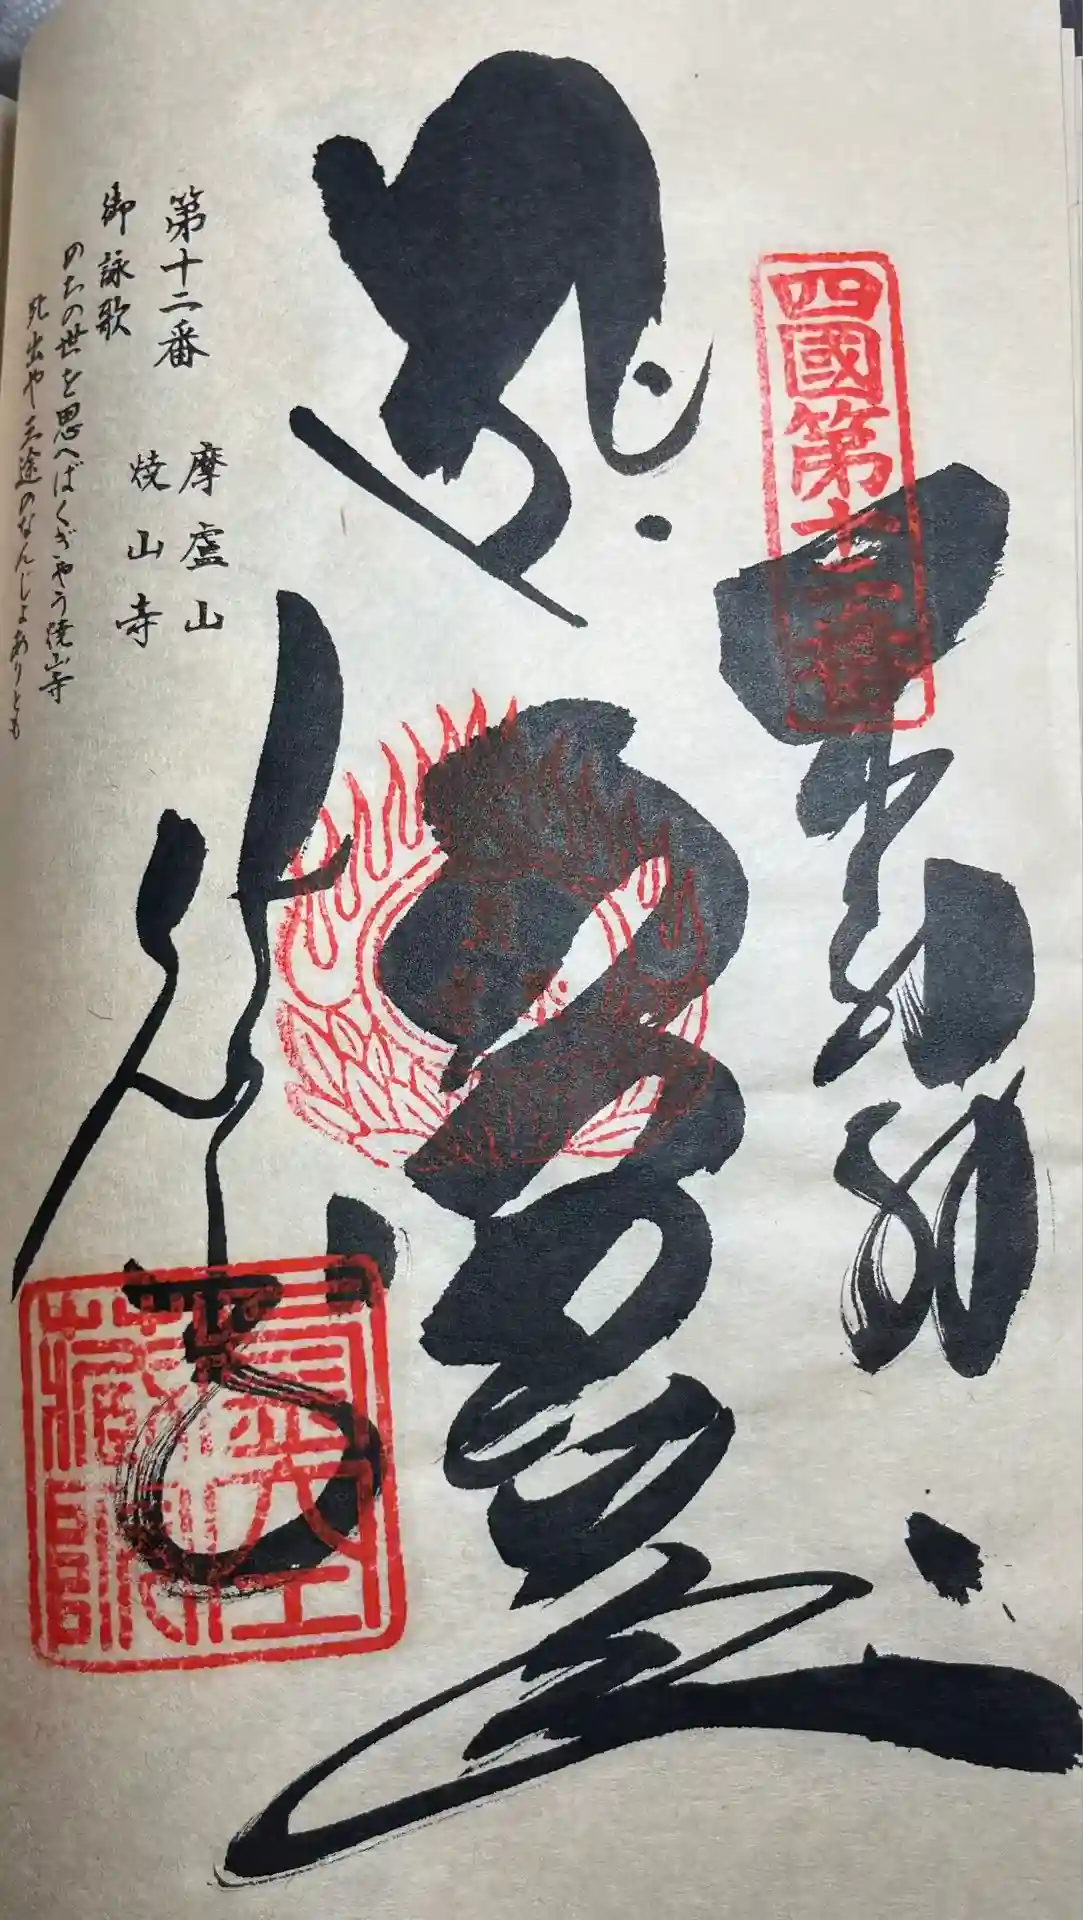 四國第十二番
奉納
虚空蔵
焼山寺
第十二番 摩盧山
焼山寺
御詠歌
のちの世を思へばくぎやう焼山寺
死出や三途のなんじよありとも